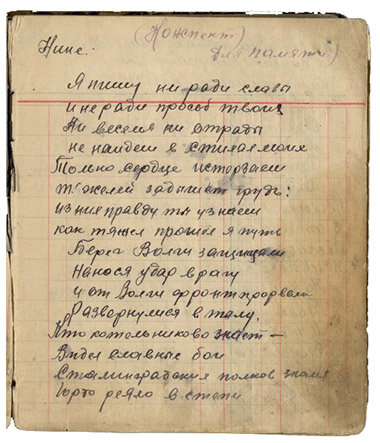 (Конспект)
Нине.
для памяти)
Я пишу ни ради славы
и не ради просьб твоих
Ни веселья ни отрады
не найдеш в стихах моих
Только сердце истерзаеш
тяжелей задышет грудь:
из них правду ты узнаеш
как тяжел прошел я путь
Берег Волги защищали
Нанося удар врагу
и от Волги фронт прорвали
Развернулися в тылу.
Кто котельниково знает —
Видел славные бои
Сталинградских полков знамя
Гордо реяло в степи